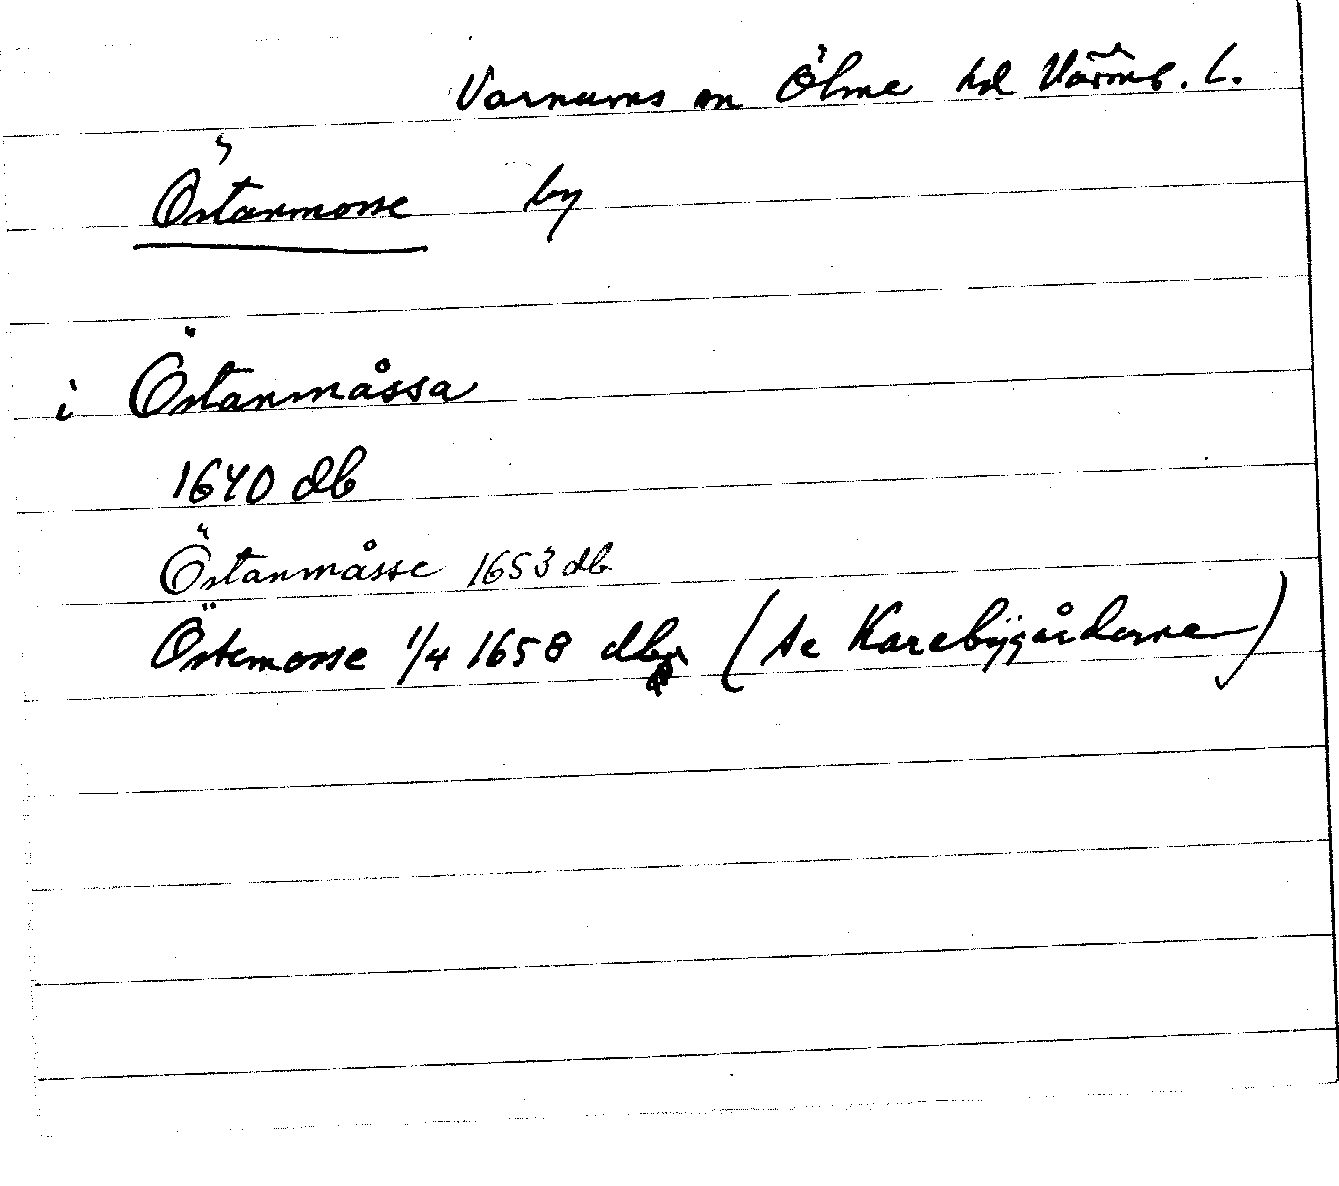 Varnums sn Ölme hd Värml. l.
Östanmosse by
i Östanmåssa
1640 db
Östanmåsse 1653 db
Östemosse 1/4 1658 db (se Karebygårdarne)